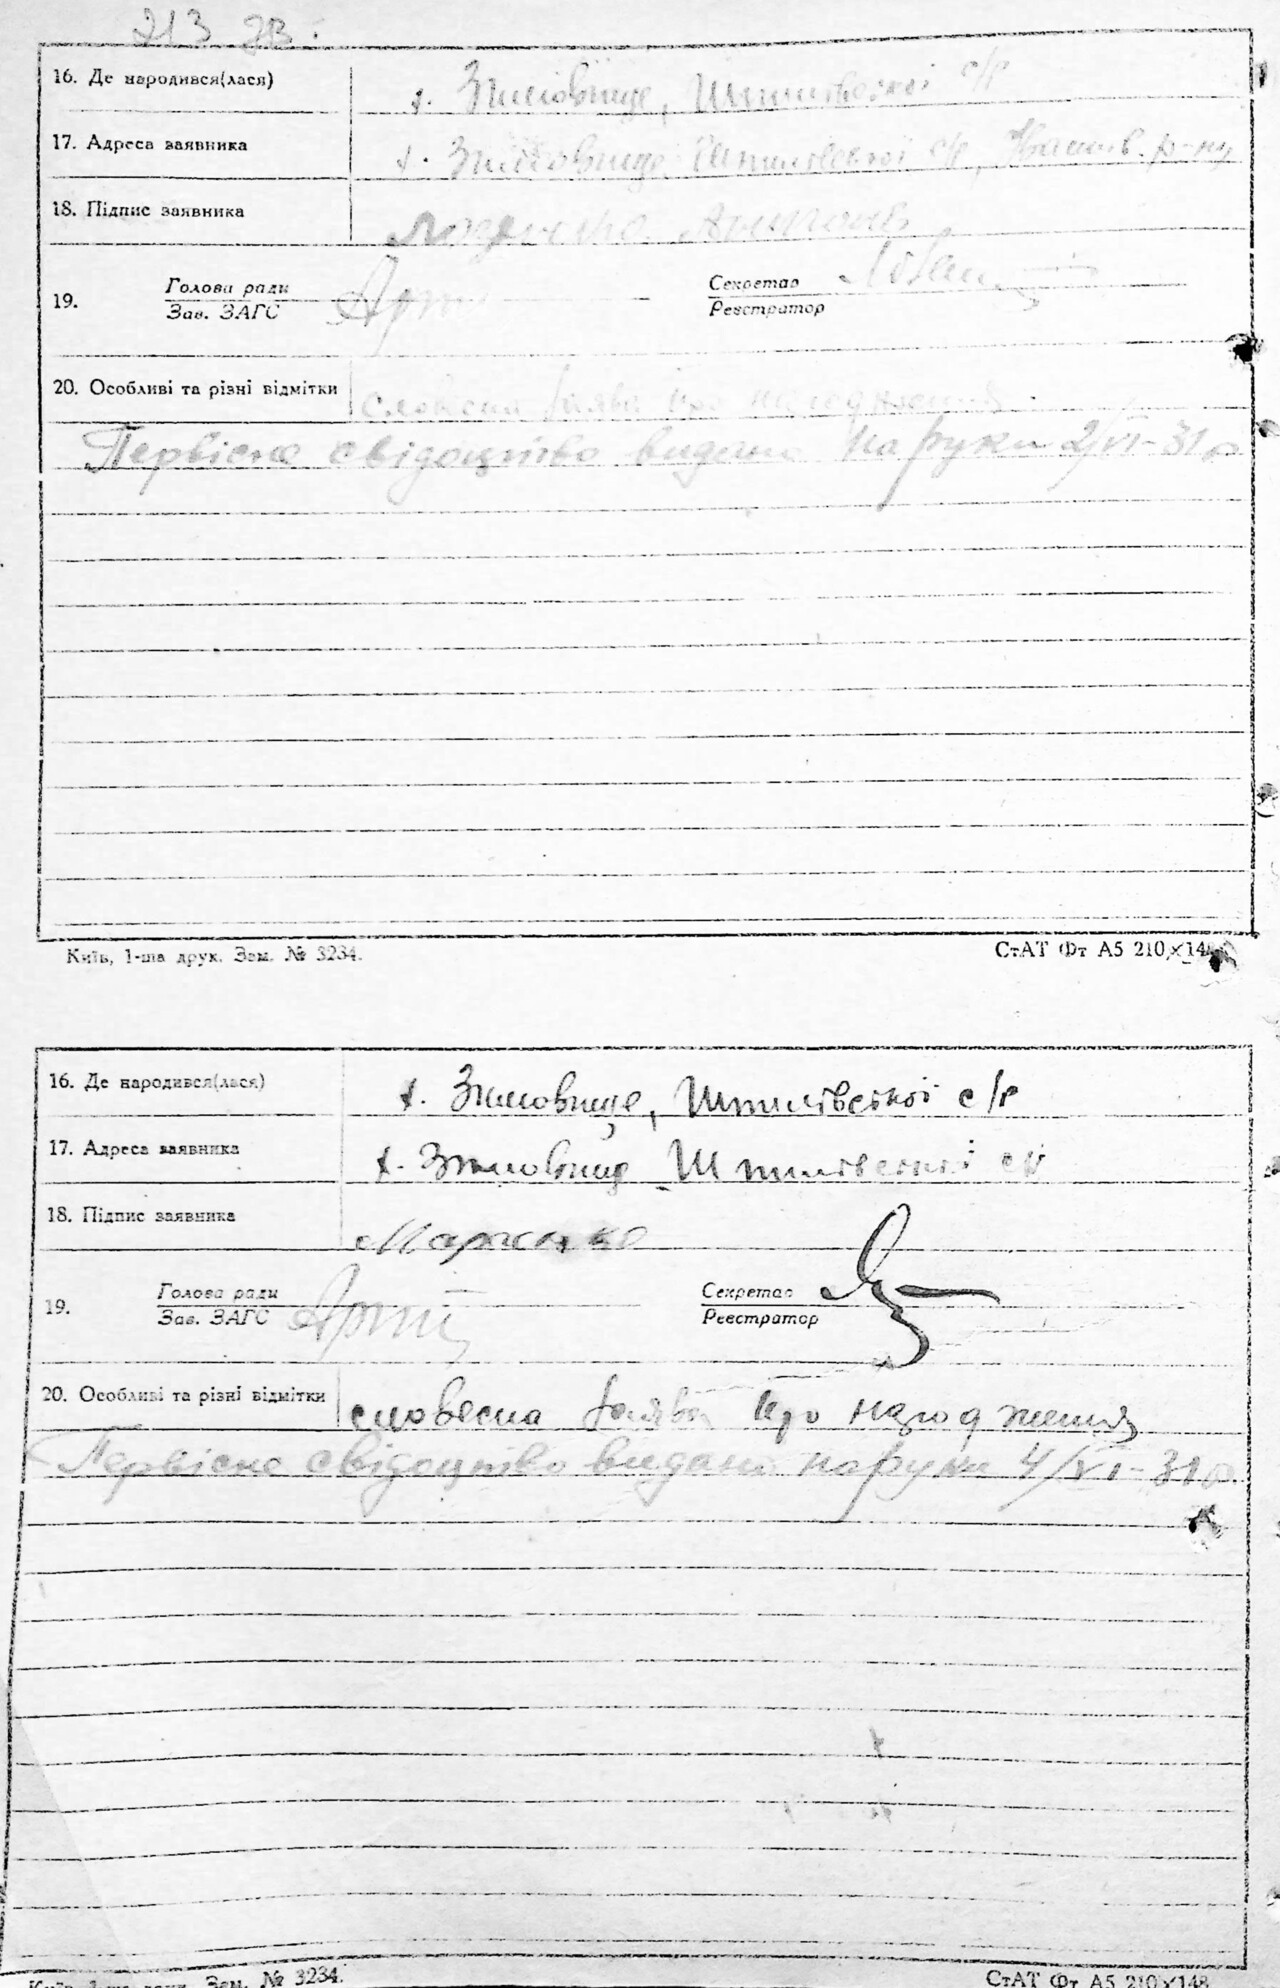 213 зв.
16. Де народився(лася) х. Зимовище, Шпилівської с/р
17. Адреса заявника х. Зимовище Шпилівської с/р, Іванків. р-ну
18. Підпис заявника
19. Голова ради Секретар
Зав. ЗАГС Реєстратор
20. Особливі та різні відмітки словесна заява про народження
Первісне свідоцтво видано на руки 2/VI-31 р
Київ, 1-ша друк. Зам. № 3234. СтАТ Фт А5 210×148
16. Де народився(лася) х. Зимовище, Шпилівської с/р
17. Адреса заявника х. Зимовище Шпилівської с/р
18. Підпис заявника Марченко
19. Голова ради Секретар
Зав. ЗАГС Реєстратор
20. Особливі та різні відмітки словесна заява про народження
Первісне свідоцтво видано на руки 4/VI-31 р.
Київ, 1-ша друк. Зам. № 3234. СтАТ Фт А5 210×148